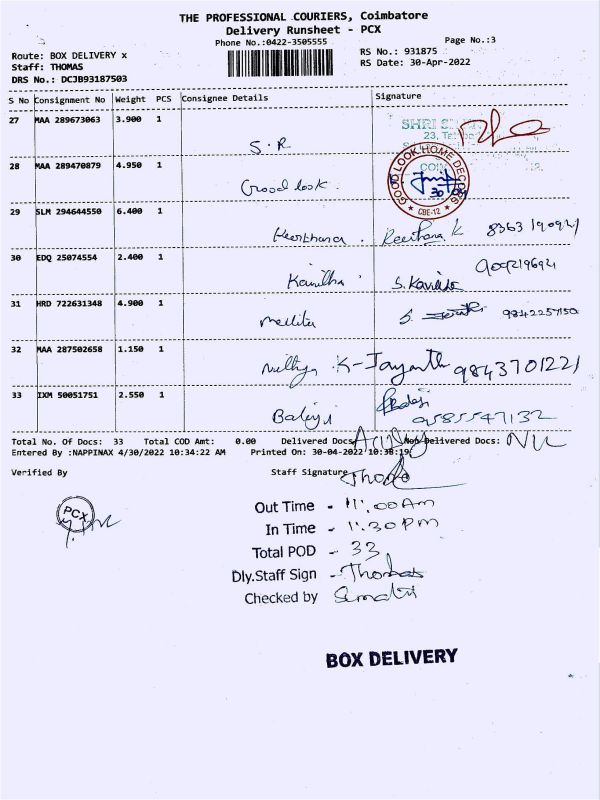 THE PROFESSIONAL COURIERS, Coimbatore
Delivery Runsheet - PCX
Phone No.:0422-3505555
Page No.:3
Route: BOX DELIVERY x
RS No.: 931875
Staff: THOMAS
RS Date: 30-Apr-2022
DRS No.: DCJB93187503
S No Consignment No Weight PCS Consignee Details Signature
27 MAA 289673063 3.900 1
SHRI
23,
S.R
28 MAA 289470879 4.950 1
GOOD LOOK HOME DECORS
CBE-12
30
Good look.
29 SLM 294644550 6.400 1
Keerthana. Keerthana K
30 EDQ 25074554 2.400 1
Kavitha S. Kavitha
31 HRD 722631348 4.900 1
S. 9842257150
32 MAA 287502658 1.150 1
K-Jayanth 9843701221
33 IXM 50051751 2.550 1
Balaji Balaji
9585547132
Total No. Of Docs: 33 Total COD Amt: 0.00 Delivered Docs: Non Delivered Docs: NIL
Entered By :NAPPINAX 4/30/2022 10:34:22 AM Printed On: 30-04-2022 10:38:19
Verified By Staff Signature Thomas
PCX
Out Time - 11:00 Am
In Time - 1:30 PM
Total POD - 33
Dly.Staff Sign - Thomas
Checked by
BOX DELIVERY